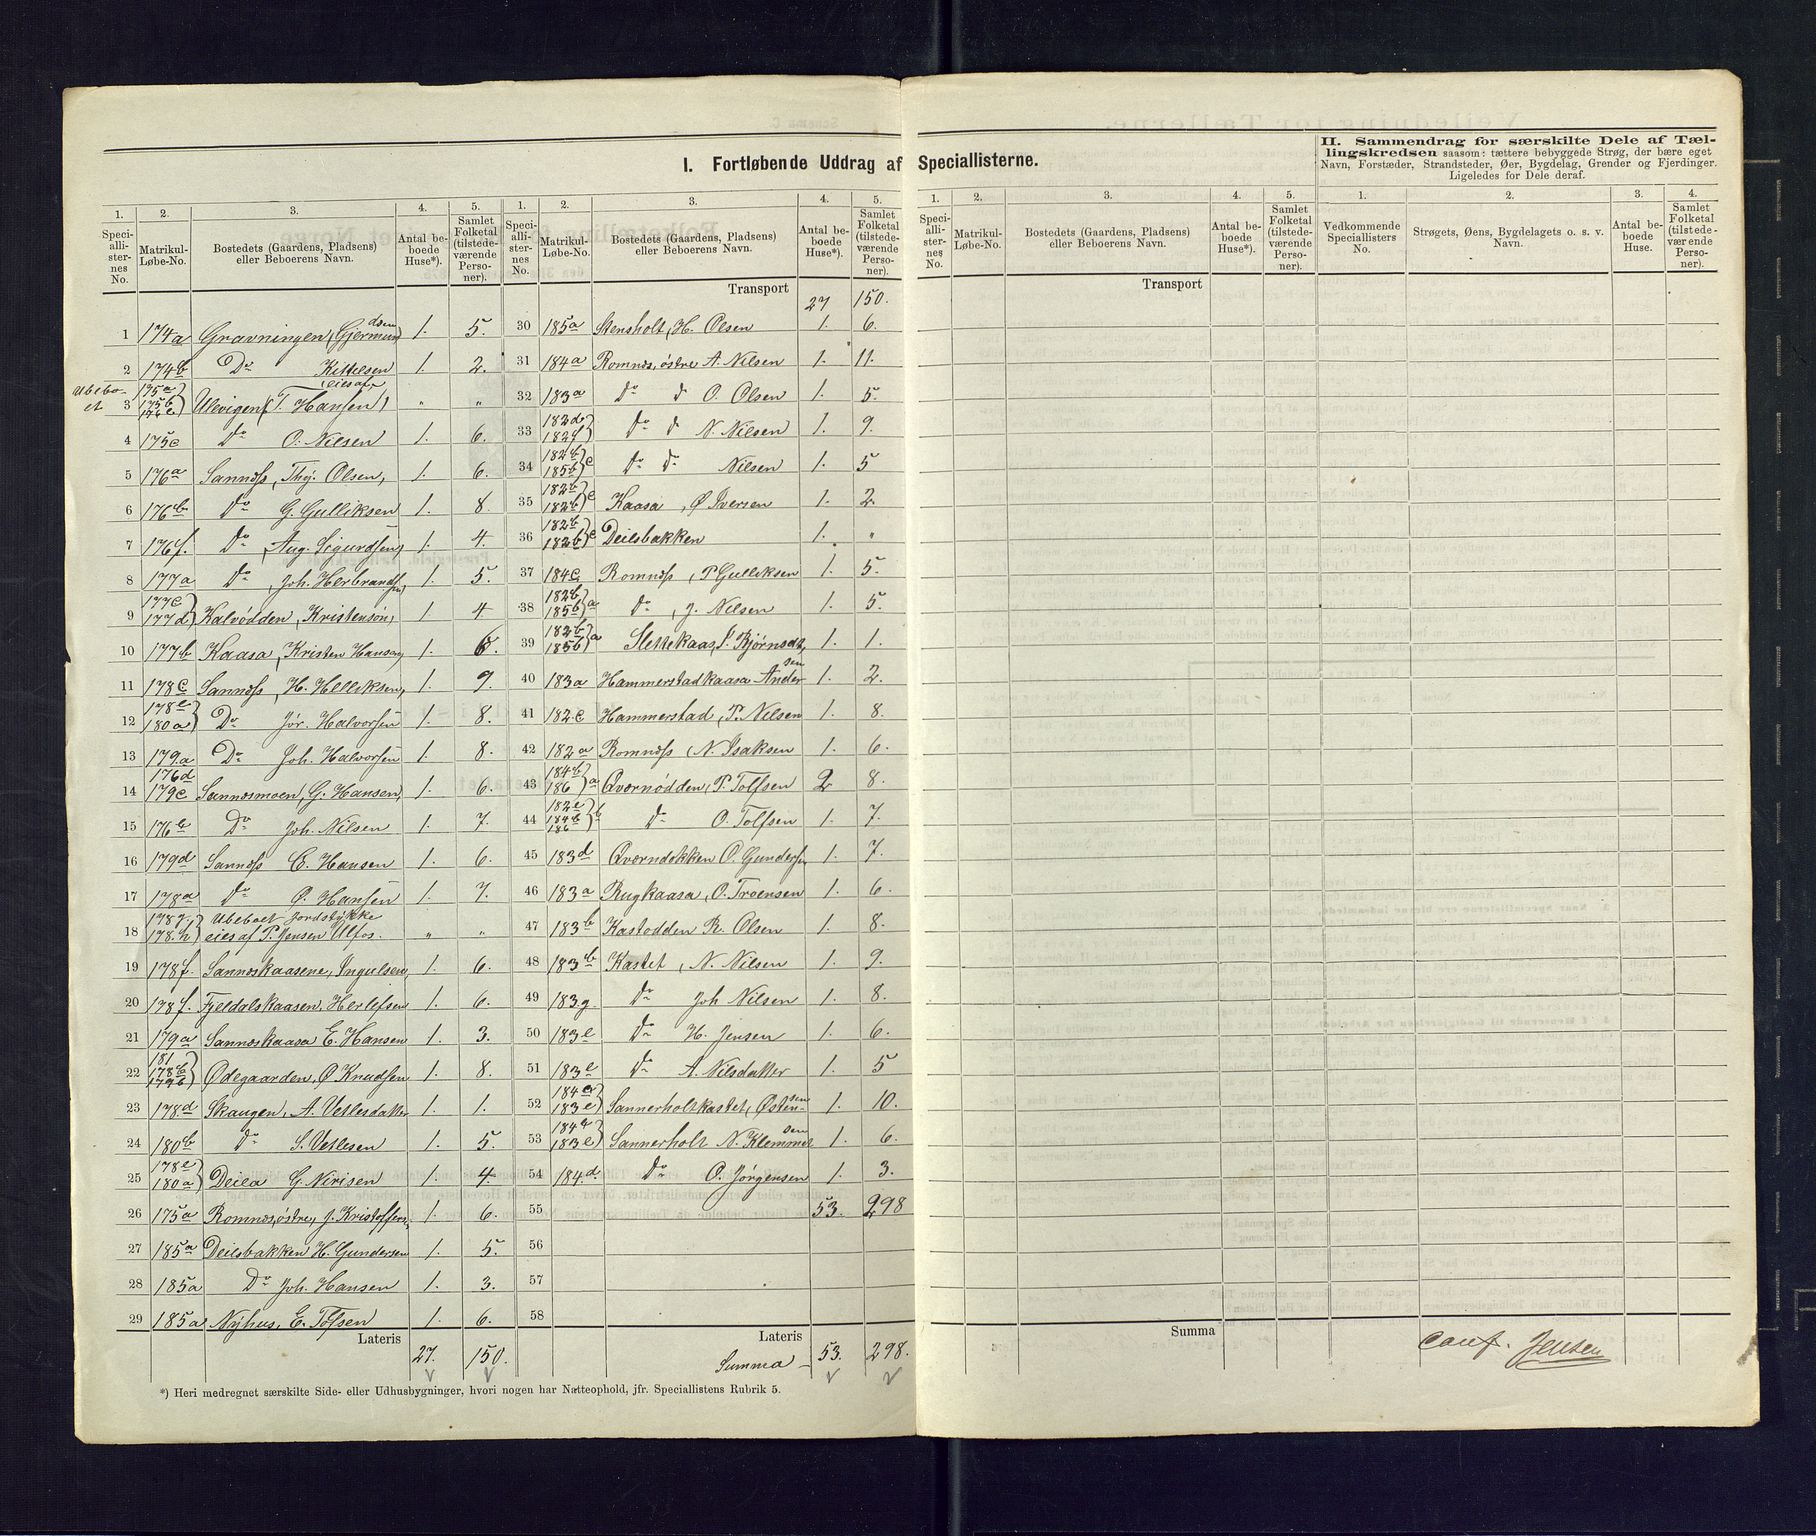 I. Fortløbende Uddrag af Speciallisterne.
II. Sammendrag for særskilte Dele af Tællingskredsen saasom: tættere bebyggede Strøg, der bære eget
Navn, Forstæder, Strandsteder, Øer, Bygdelag, Grender og Fjerdinger.
Ligeledes for Dele deraf.
1. 2. 3. 4. 5. 1. 2. 3. 4. 5. 1. 2. 3. 4. 5. 1. 2. 3. 4.
Speciallisternes No.
Matrikul-Løbe-No.
Bostedets (Gaardens, Pladsens) eller Beboerens Navn.
Antal beboede Huse*).
Samlet Folketal (tilstedeværende Personer).
Speciallisternes No.
Matrikul-Løbe-No.
Bostedets (Gaardens, Pladsens) eller Beboerens Navn.
Antal beboede Huse*).
Samlet Folketal (tilstedeværende Personer).
Speciallisternes No.
Matrikul-Løbe-No.
Bostedets (Gaardens, Pladsens) eller Beboerens Navn.
Antal beboede Huse*).
Samlet Folketal (tilstedeværende Personer).
Vedkommende Speciallisters No.
Strøgets, Øens, Bygdelagets o. s. v. Navn.
Antal beboede Huse.
Samlet Folketal (tilstedeværende Personer).
1 174a Gravningen, Gjermundsen 1. 5.
2 174b Do Kittelsen 1. 2.
Ubeboet 3 175a 175b Ulevigen (eies af T. Hansen) " "
4 175c Do O. Nilsen 1. 6.
5 176a Sannøss, Thj. Olsen, 1. 6.
6 176b Do G. Gulliksen 1. 8.
7 176f. Do, Aug. Sigurdsen, 1. 4.
8 177a Do, Joh. Herbrandsen, 1. 5.
9 177c 177d Kalvødden, Kristensøn, 1 4
10 177b Kaasa, Kristen Hansen, 1. 6.
11 178c Sannøss, H. Helliksen, 1. 9.
12 178e 180a Do Jør. Halvorsen 1. 8.
13 179a Do Joh. Halvorsen 1. 8.
14 176d 179c Sannøsmoen, G. Hansen, 1. 6.
15 176e Do Joh. Nilsen 1. 7.
16 179d Sannøss E. Hansen 1. 6.
17 178a Do Ø. Hansen 1. 7.
18 178g. 178.h Ubeboet Jordstykke eies af P. Jensen Ulfos. " "
19 178f. Sannøskaasene, Ingulsen, 1. 6.
20 178f. Fjeldalskaasen, Herlefsen 1. 6.
21 179a Sannøskaasa E. Hansen 1. 3.
22 181 178b 179b Ødegaarden, Ø Knudsen 1. 8.
23 178d Skaugen, A. Vetlesdatter 1. 1.
24 180b Do S. Vetlesen 1. 5.
25 178e 180a Deila G. Nirisen 1. 4
26 175a Romnøs, østre, J. Kristoffers, 1. 6.
27 185a Deilsbakken H. Gundersen 1. 5.
28 185a Do Joh. Hansen 1. 3.
29 185a Nyhus, E. Tofsen 1. 6.
Lateris 27. 150.
Transport 27 150.
30 185a Stensholt, H. Olsen 1. 6.
31 184a Romnøs, østre A. Nilsen 1. 11.
32 183a Do d O. Olsen 1. 5.
33 182d 182f Do d N. Nilsen 1. 9.
34 182b 185b c Do Do Nilsen 1. 5
35 182b 182b c Kaasa, Ø Iversen 1. 2.
36 182b 182b c Deilsbakken 1. "
37 184c Romnøss, P Gulliksen 1. 5.
38 182b 185b a Do, J. Nilsen 1. 5.
39 182b 185b a Slettekaas, Bjørnsdt, 1. 1.
40 183a Hammerstadkaasa Andersen 1. 2.
41 182c Hammerstad, P. Nilsen 1. 8.
42 182a Romnøss N. Isaksen 1. 6.
43 184b 186 a Qvernødden, P. Tolfsen 2 8.
44 182e 184b 186 b Do O. Tolfsen 1. 7.
45 183d Qverndokken O. Gundersen 1. 7.
46 183a Rugkaasa, O. Troensen 1. 6.
47 183b Kastodden R. Olsen 1. 8.
48 183b Kastet, N. Nilsen 1. 9.
49 183g Do Joh Nilsen 1. 8.
50 183e Do H. Jensen 1. 6.
51 183e Do A. Nilsdatter 1. 5
52 184e 183e Sannerholtkastet, Østensen 1. 10.
53 184b 183e Sannerholt N. Klemmetsen 1. 6.
54 184.d. Do O. Jørgensen 1. 3.
55 53. 298
56
57
58
Lateris
Summa 53. 298.
Transport
Summa
Conf. Jensen
*) Heri medregnet særskilte Side- eller Udhusbygninger, hvori nogen har Natteophold, jfr. Speciallistens Rubrik 5.